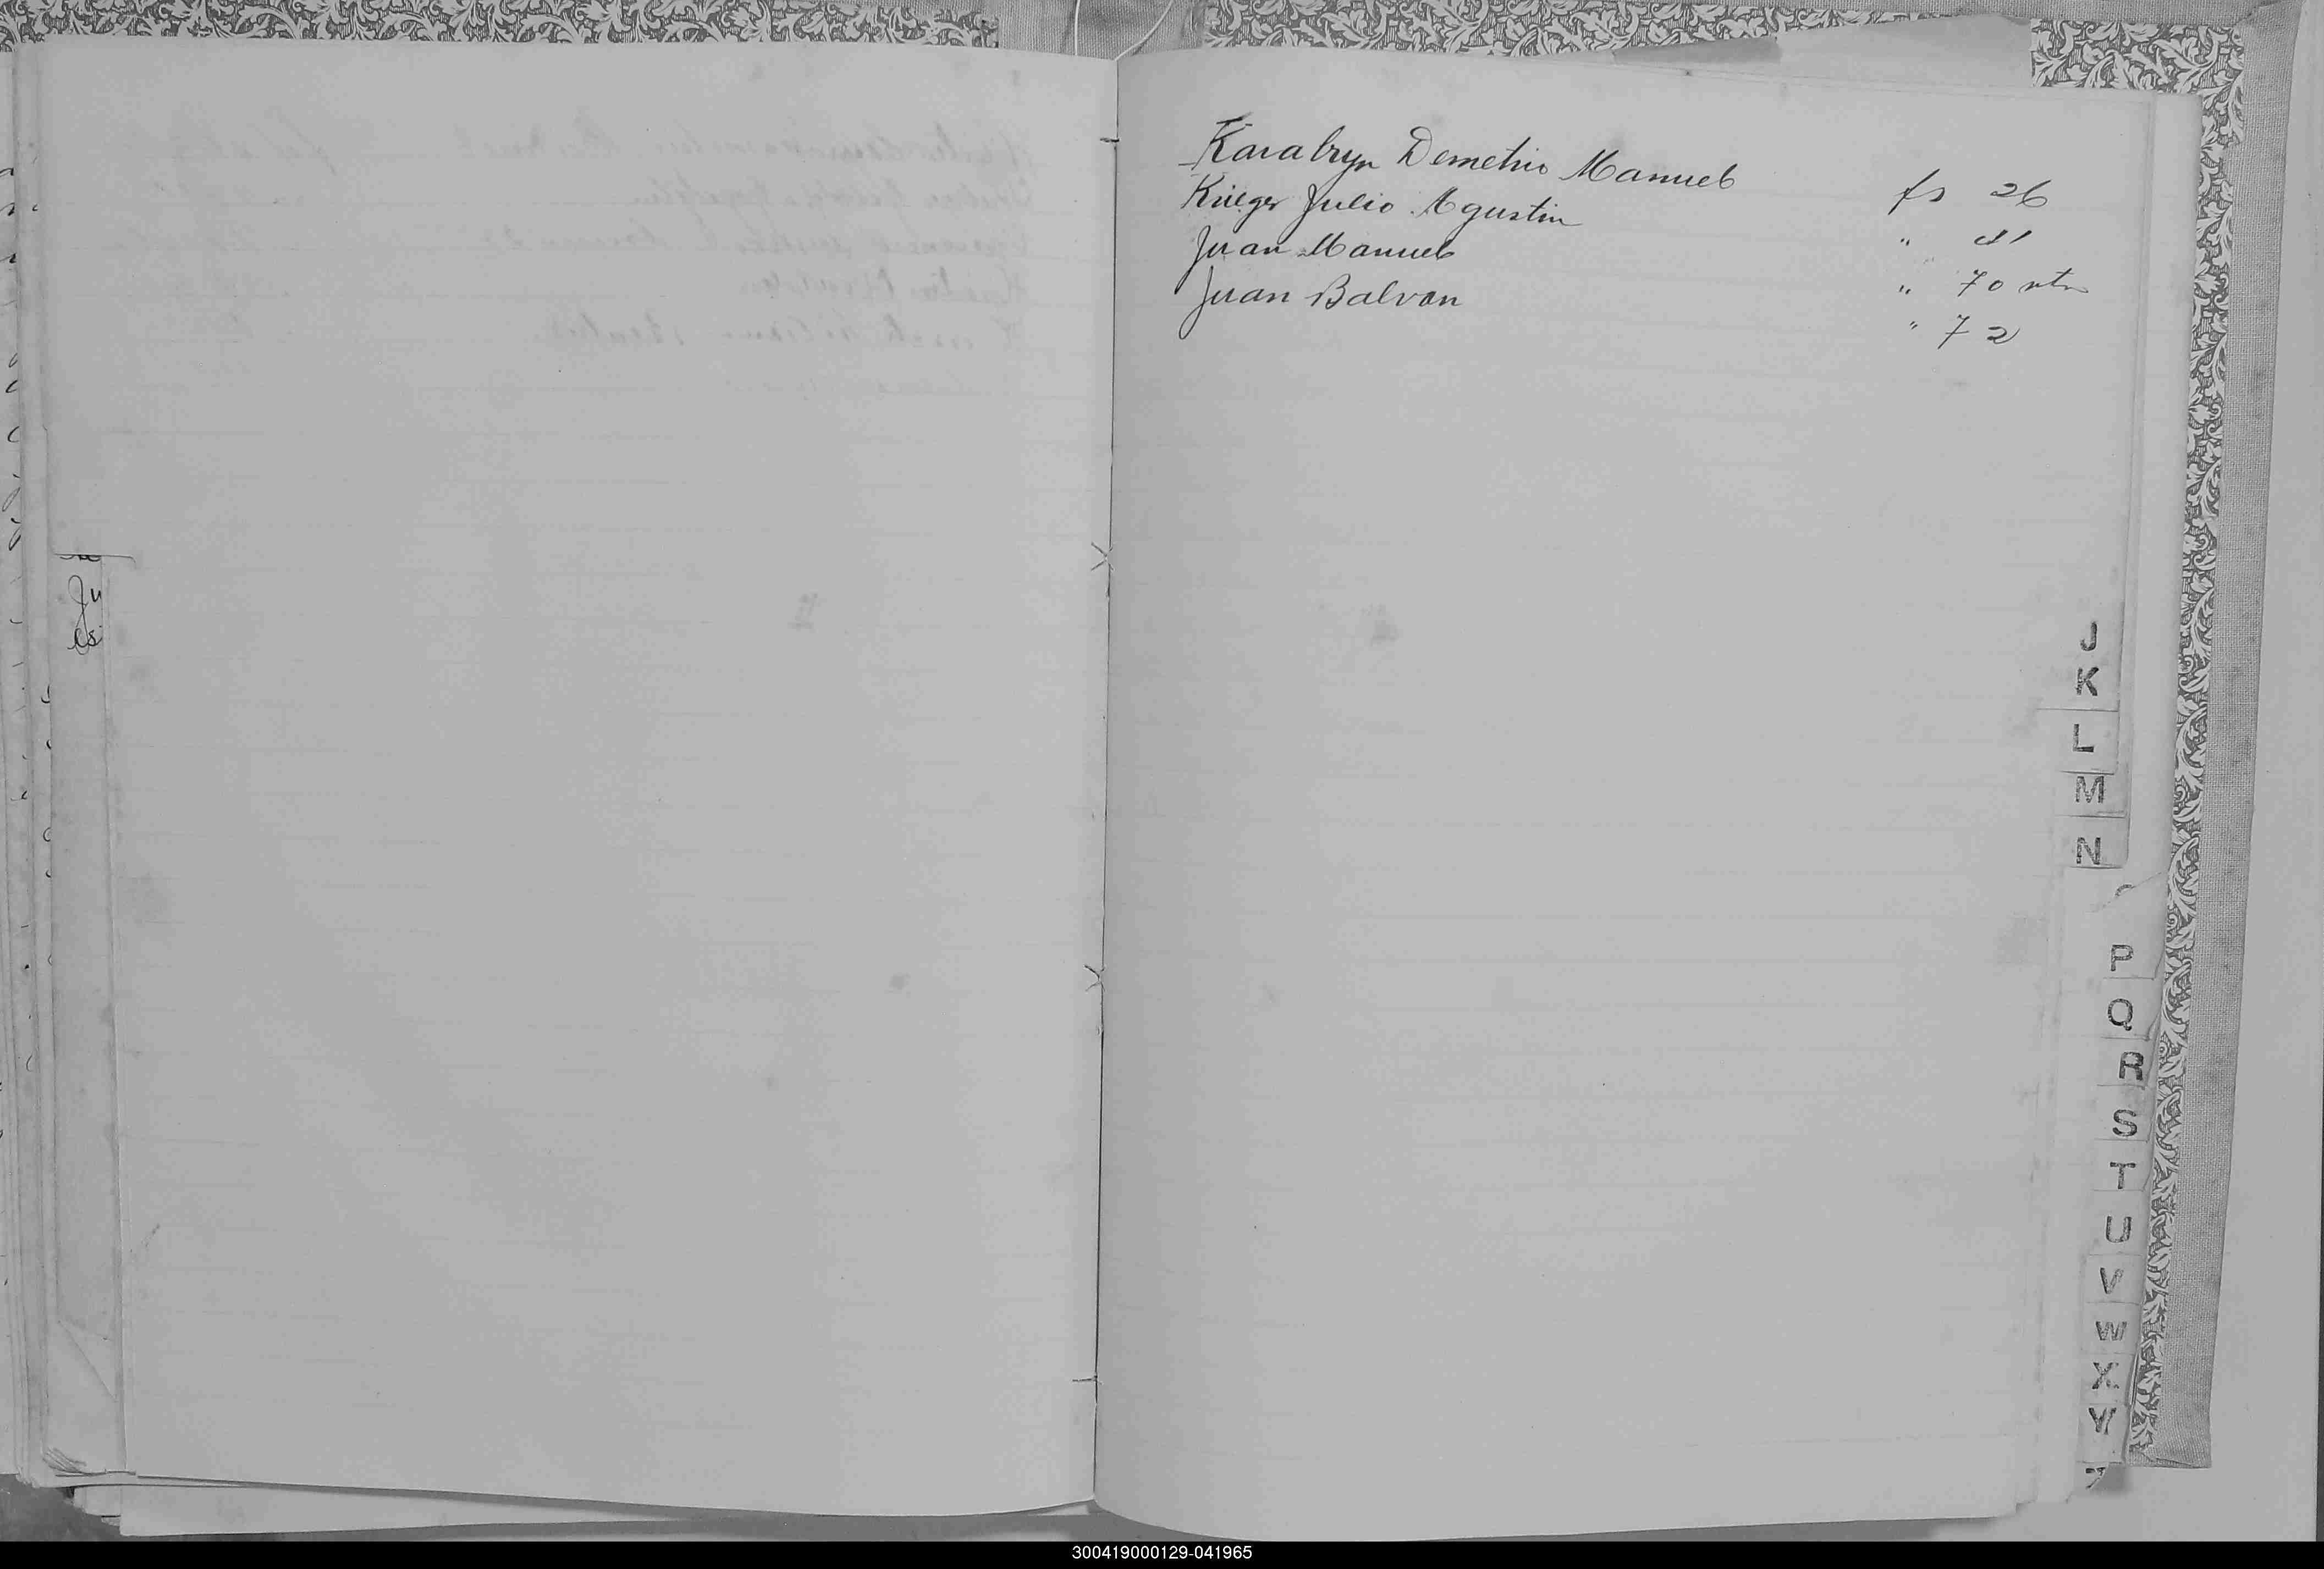 Karabyn Demetrio Manuel fs 26
Krieger Julio Agustin " 41
Juan Manuel " 70 vta
Juan Balvan " 72
Ju
J
K
L
M
N
P
Q
R
S
T
U
V
W
X
Y
300419000129-041965